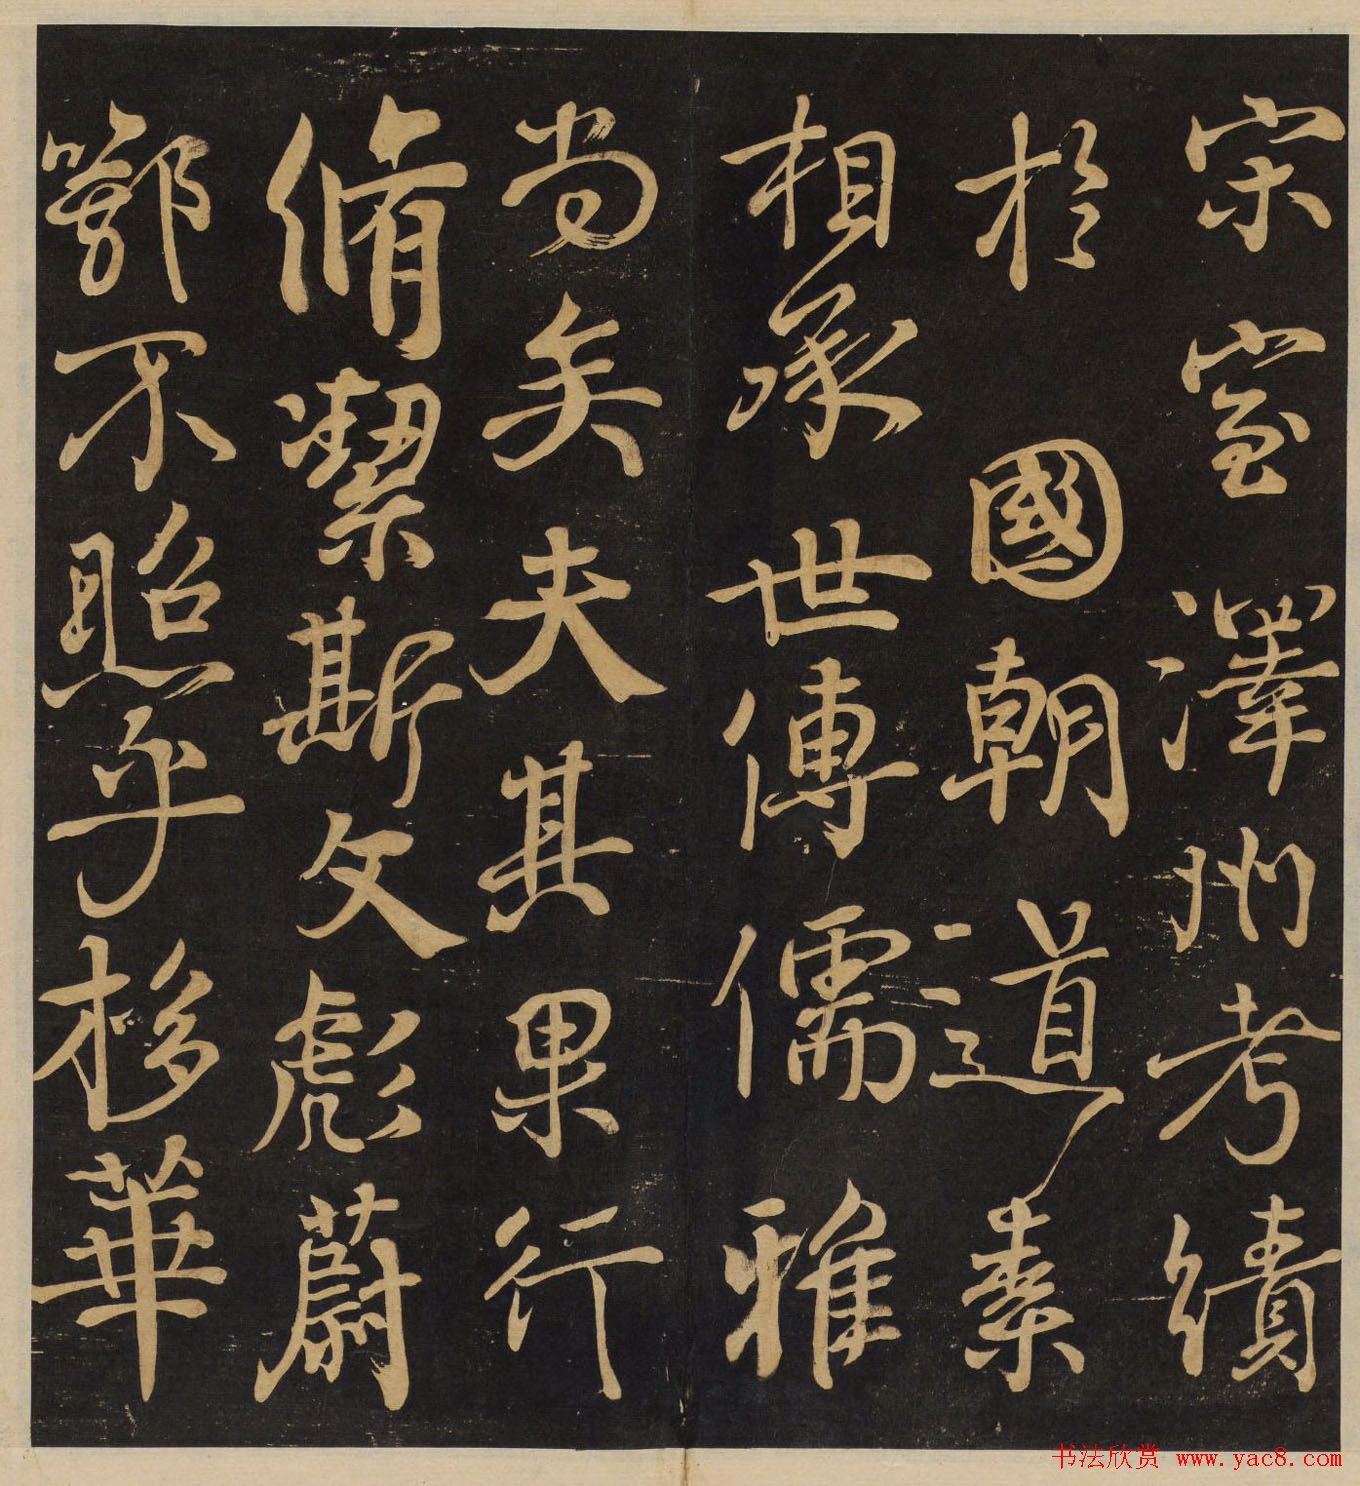 宋室澤州考績
於國朝道素
相承世傳儒雅
尚矣夫其果行
脩潔斯文彪蔚
鄂不照乎棣華
书法欣赏 www.yac8.com